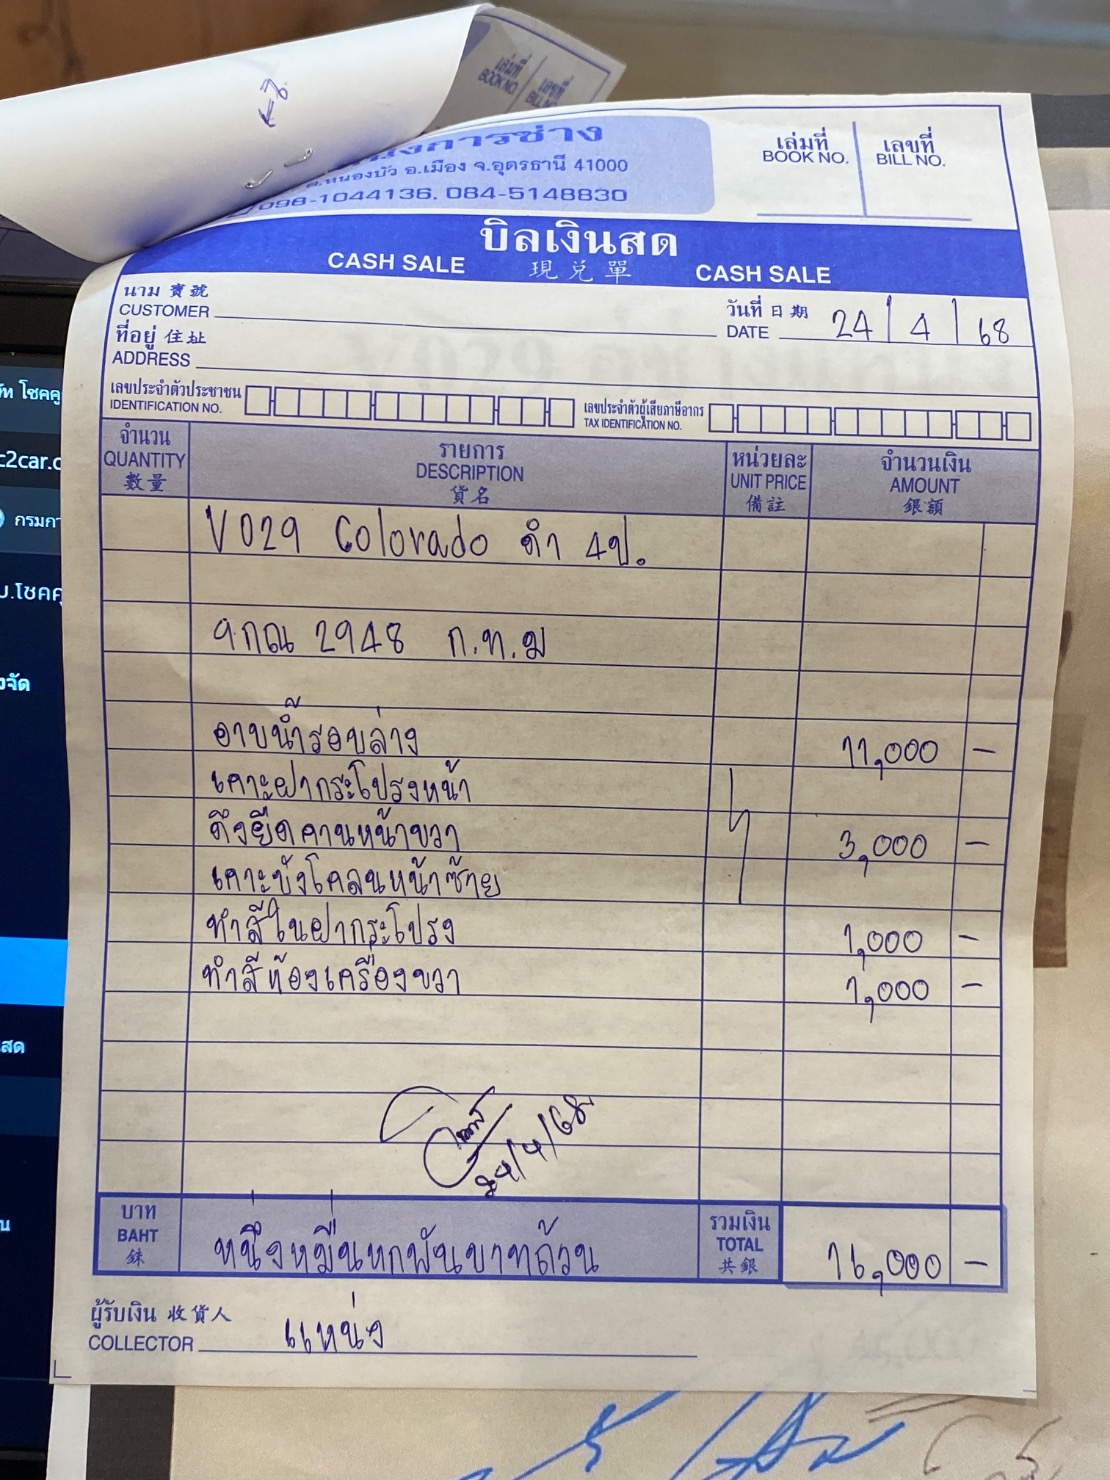 เล่มที่
BOOK NO.
การช่าง
ต.หนองบัว อ.เมือง จ.อุดรธานี 41000
098-1044136, 084-5148830
เล่มที่ เลขที่
BOOK NO. BILL NO.
บิลเงินสด
CASH SALE 現兌單 CASH SALE
นาม 寶號
CUSTOMER
วันที่ 日期
DATE 24 / 4 / 68
ที่อยู่ 住址
ADDRESS
เลขประจำตัวประชาชน
IDENTIFICATION NO.
เลขประจำตัวผู้เสียภาษีอากร
TAX IDENTIFICATION NO.
จำนวน รายการ หน่วยละ จำนวนเงิน
QUANTITY DESCRIPTION UNIT PRICE AMOUNT
數量 貨名 備註 銀額
V029 Colorado ดำ 4ป.
2948 ก.ท.ม
อาบน้ำรอบล่าง 11,000 -
เคาะฝากระโปรงหน้า
ดึงยืดคานหน้าขวา 3,000 -
เคาะบังโคลนหน้าซ้าย
ทำสีในฝากระโปรง 1,000 -
ทำสีห้องเครื่องขวา 1,000 -
24/4/68
บาท
BAHT
銖
หนึ่งหมื่นหกพันบาทถ้วน
รวมเงิน
TOTAL
共銀
16,000 -
ผู้รับเงิน 收貨人
COLLECTOR แหน่ง
โชคคู
c2car.c
กรมกา
บ.โชคคู